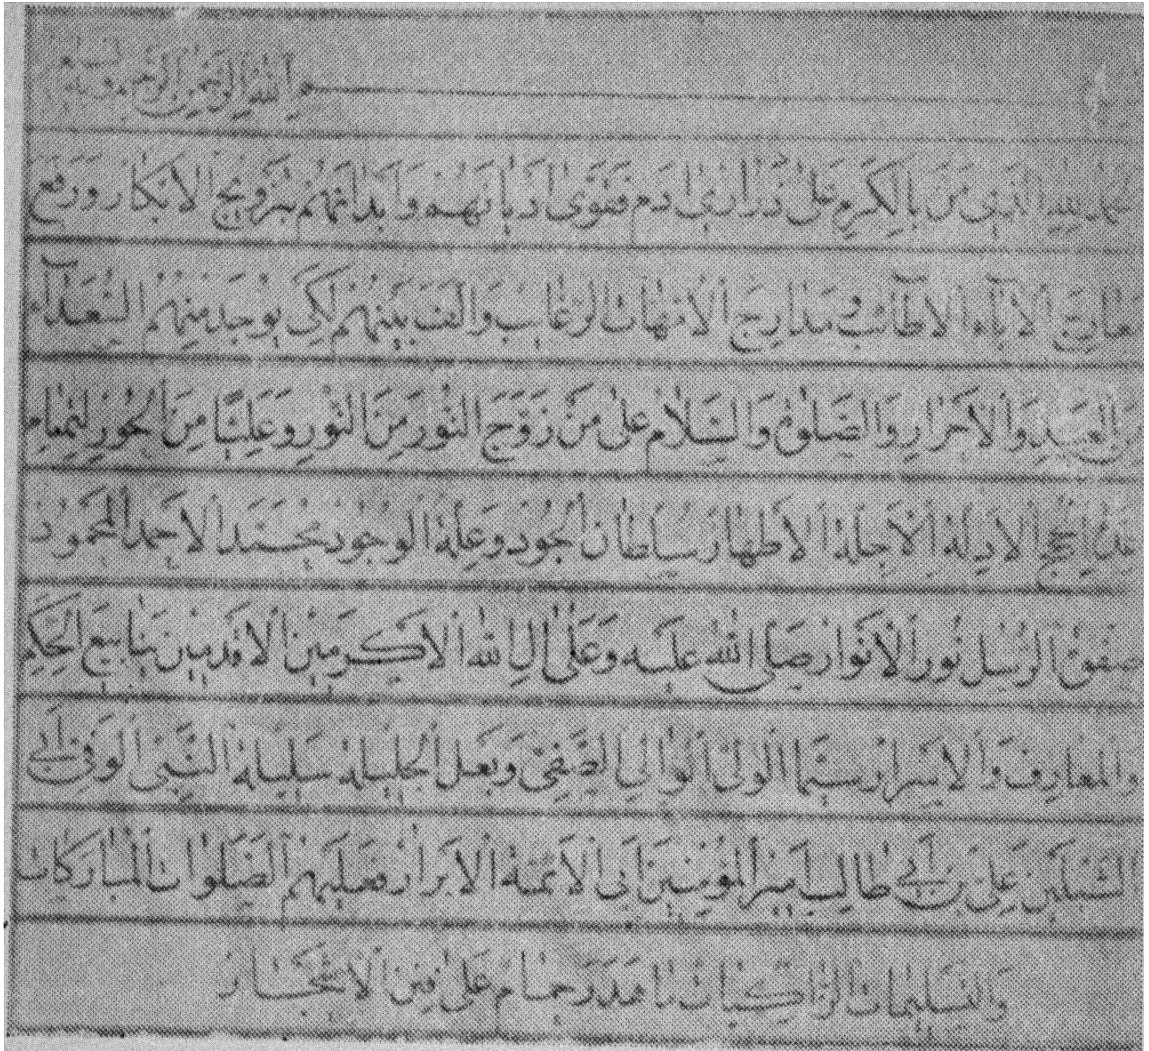 م الله الرحمن الرحيم وبه
الحمد لله الذي من بالكرم على ذراري ادم فقوى اديانهم وابدانهم بتزويج الابكار ورفع
معارج الاباء الاطائب ومدارج الامهات الرغائب والف بينهم لكي يوجد منهم السعداء
من العبيد والاحرار والصلوة والسلام على من زوج النور من النور وعليا من الحور
الحجج الادلة الاجلة الاطهار سلطان الجود وعلة الوجود محمد الاحمد المحمود
صفوة الرسل نور الانوار صلى الله عليه وعلى ال الله الاكرمين الاقدمين ينابيع الحكم
والمعارف والاسرار سيما الولي الوالي الصفي وبعل الجليلة سليلة النبي الوفي ابي
الشبلين علي بن ابي طالب امير المؤمنين ابي الائمة الابرار فعليهم الصلوات المباركات
والتسليمات الزاكيات ما هدر حمام على فنن الاشجار